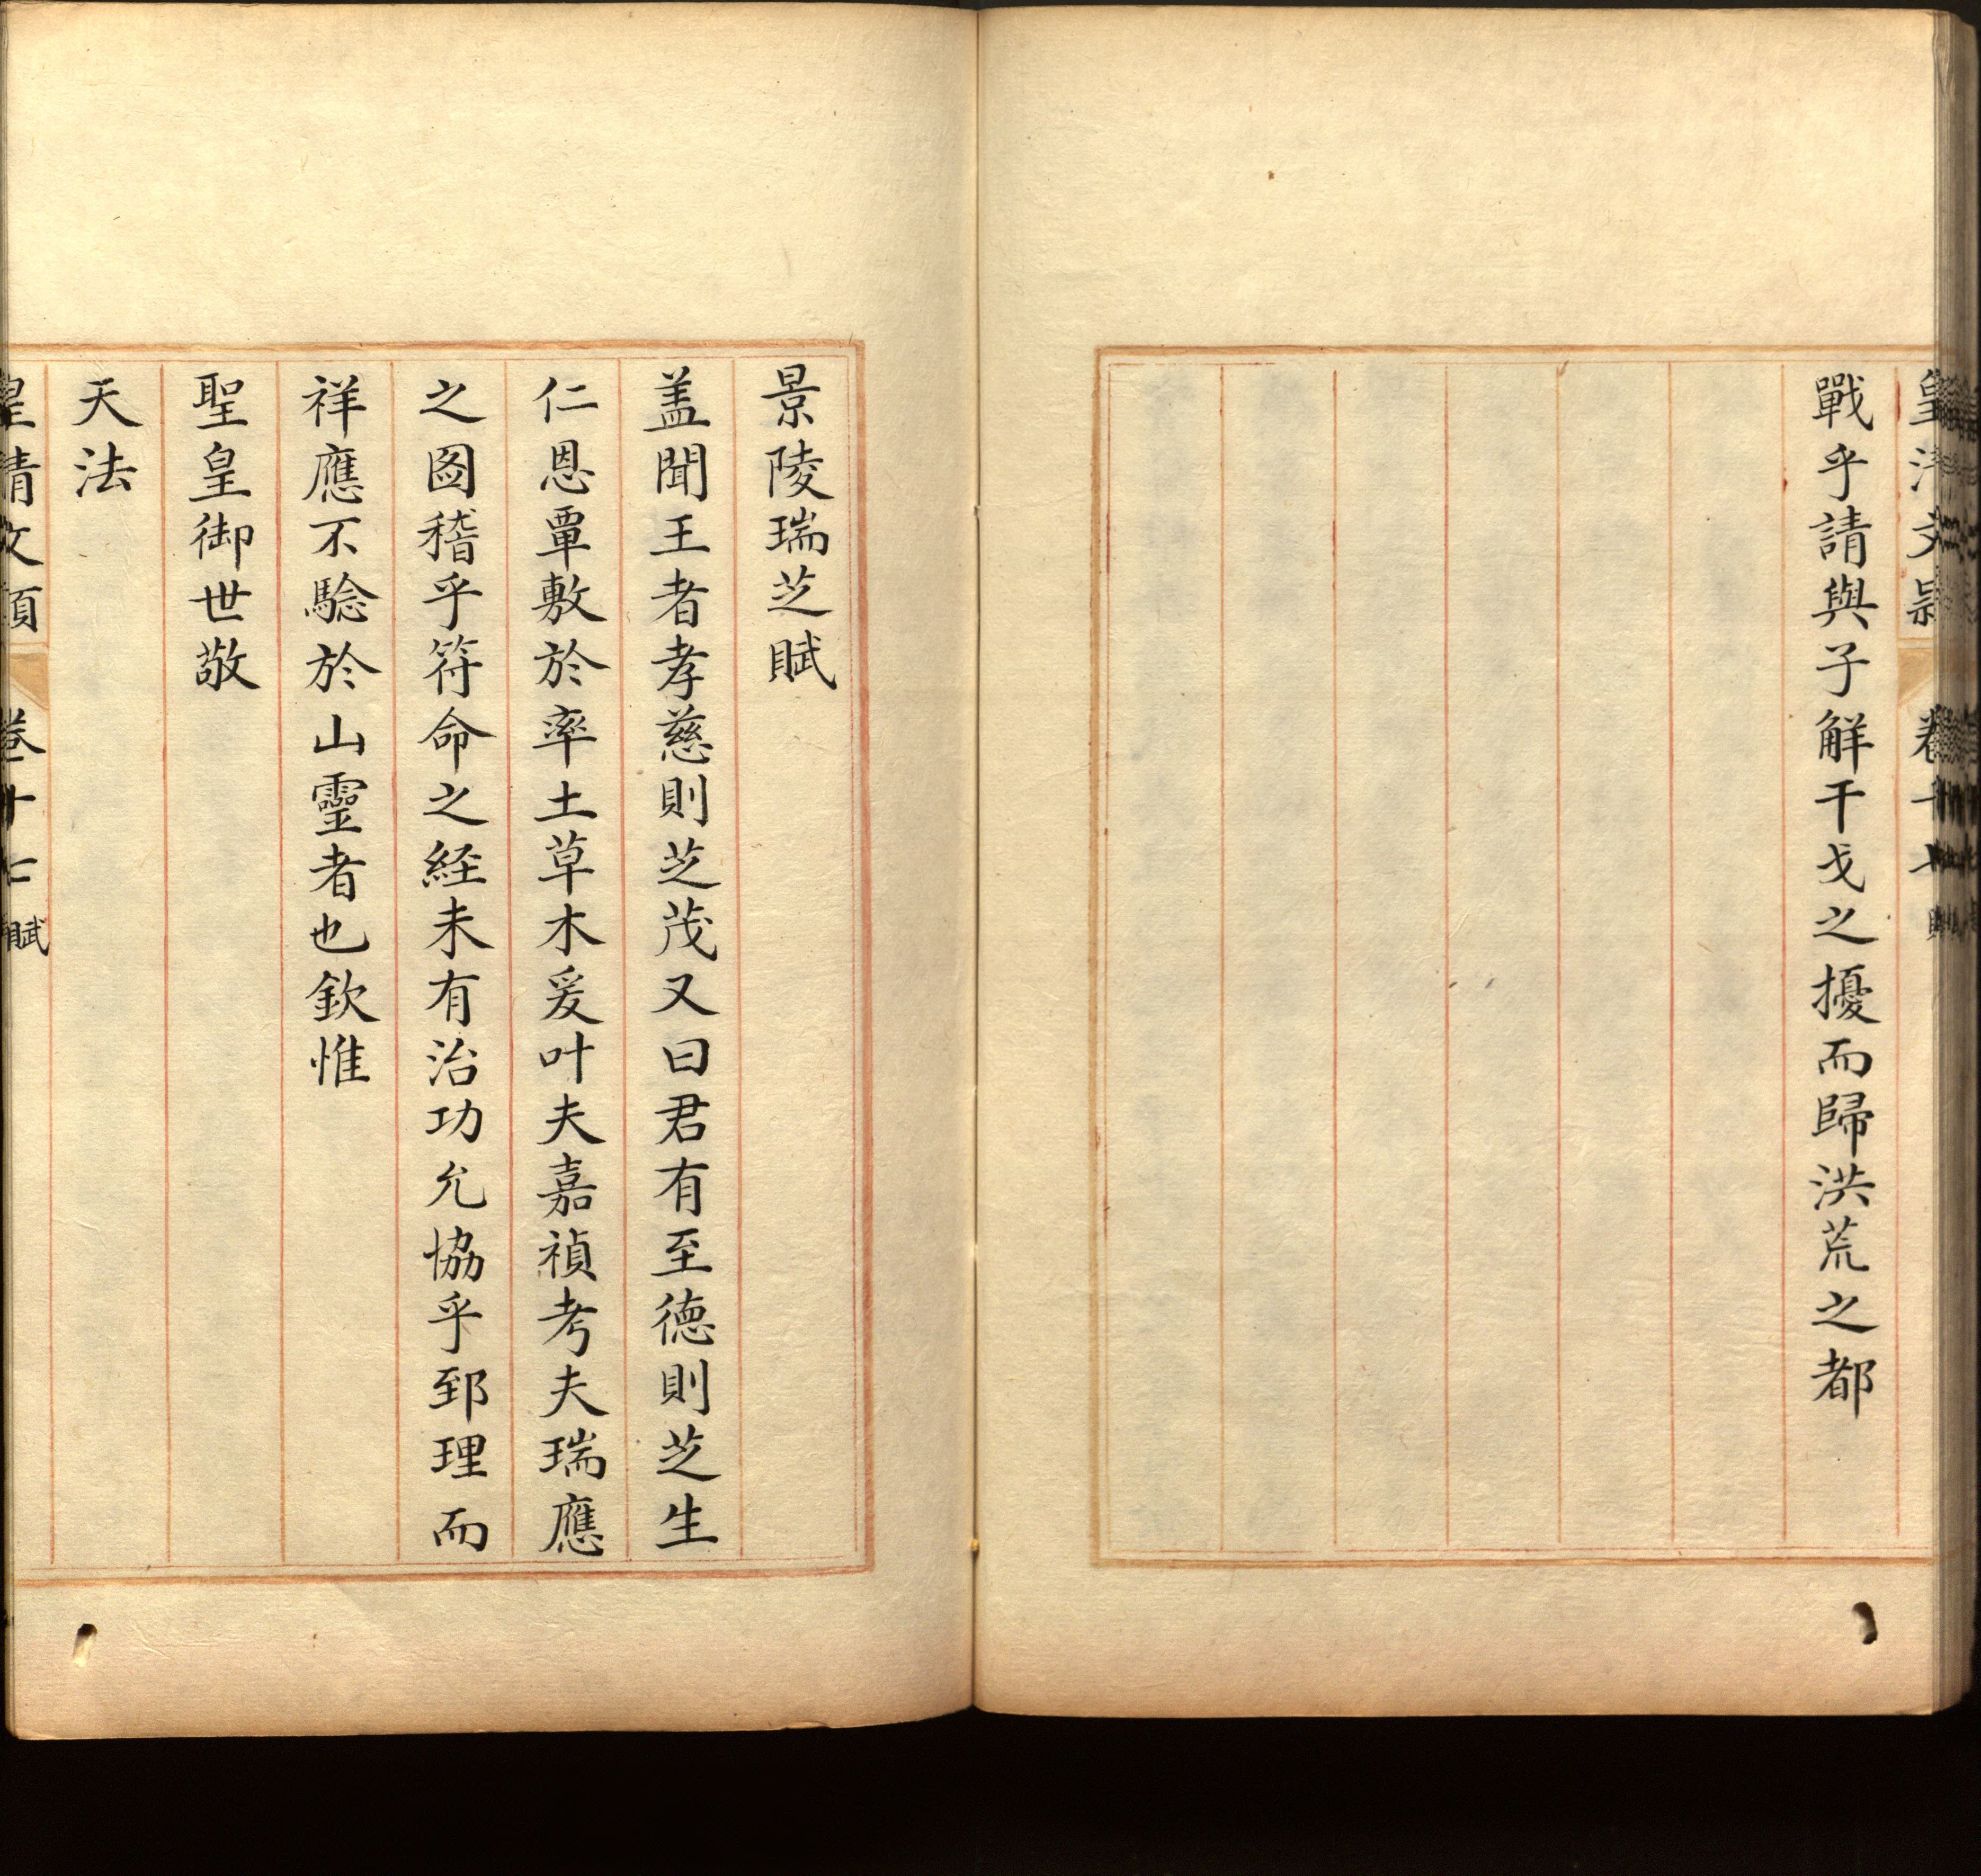 皇清文穎　卷十七　賦
戰乎請與子解干戈之擾而歸洪荒之都
景陵瑞芝賦
盖聞王者孝慈則芝茂又曰君有至德則芝生
仁恩覃敷於率土草木爰叶夫嘉禎考夫瑞應
之圖稽乎符命之経未有治功允協乎郅理而
祥應不騐於山靈者也欽惟
聖皇御世敬
天法
皇清文穎　卷十七　賦